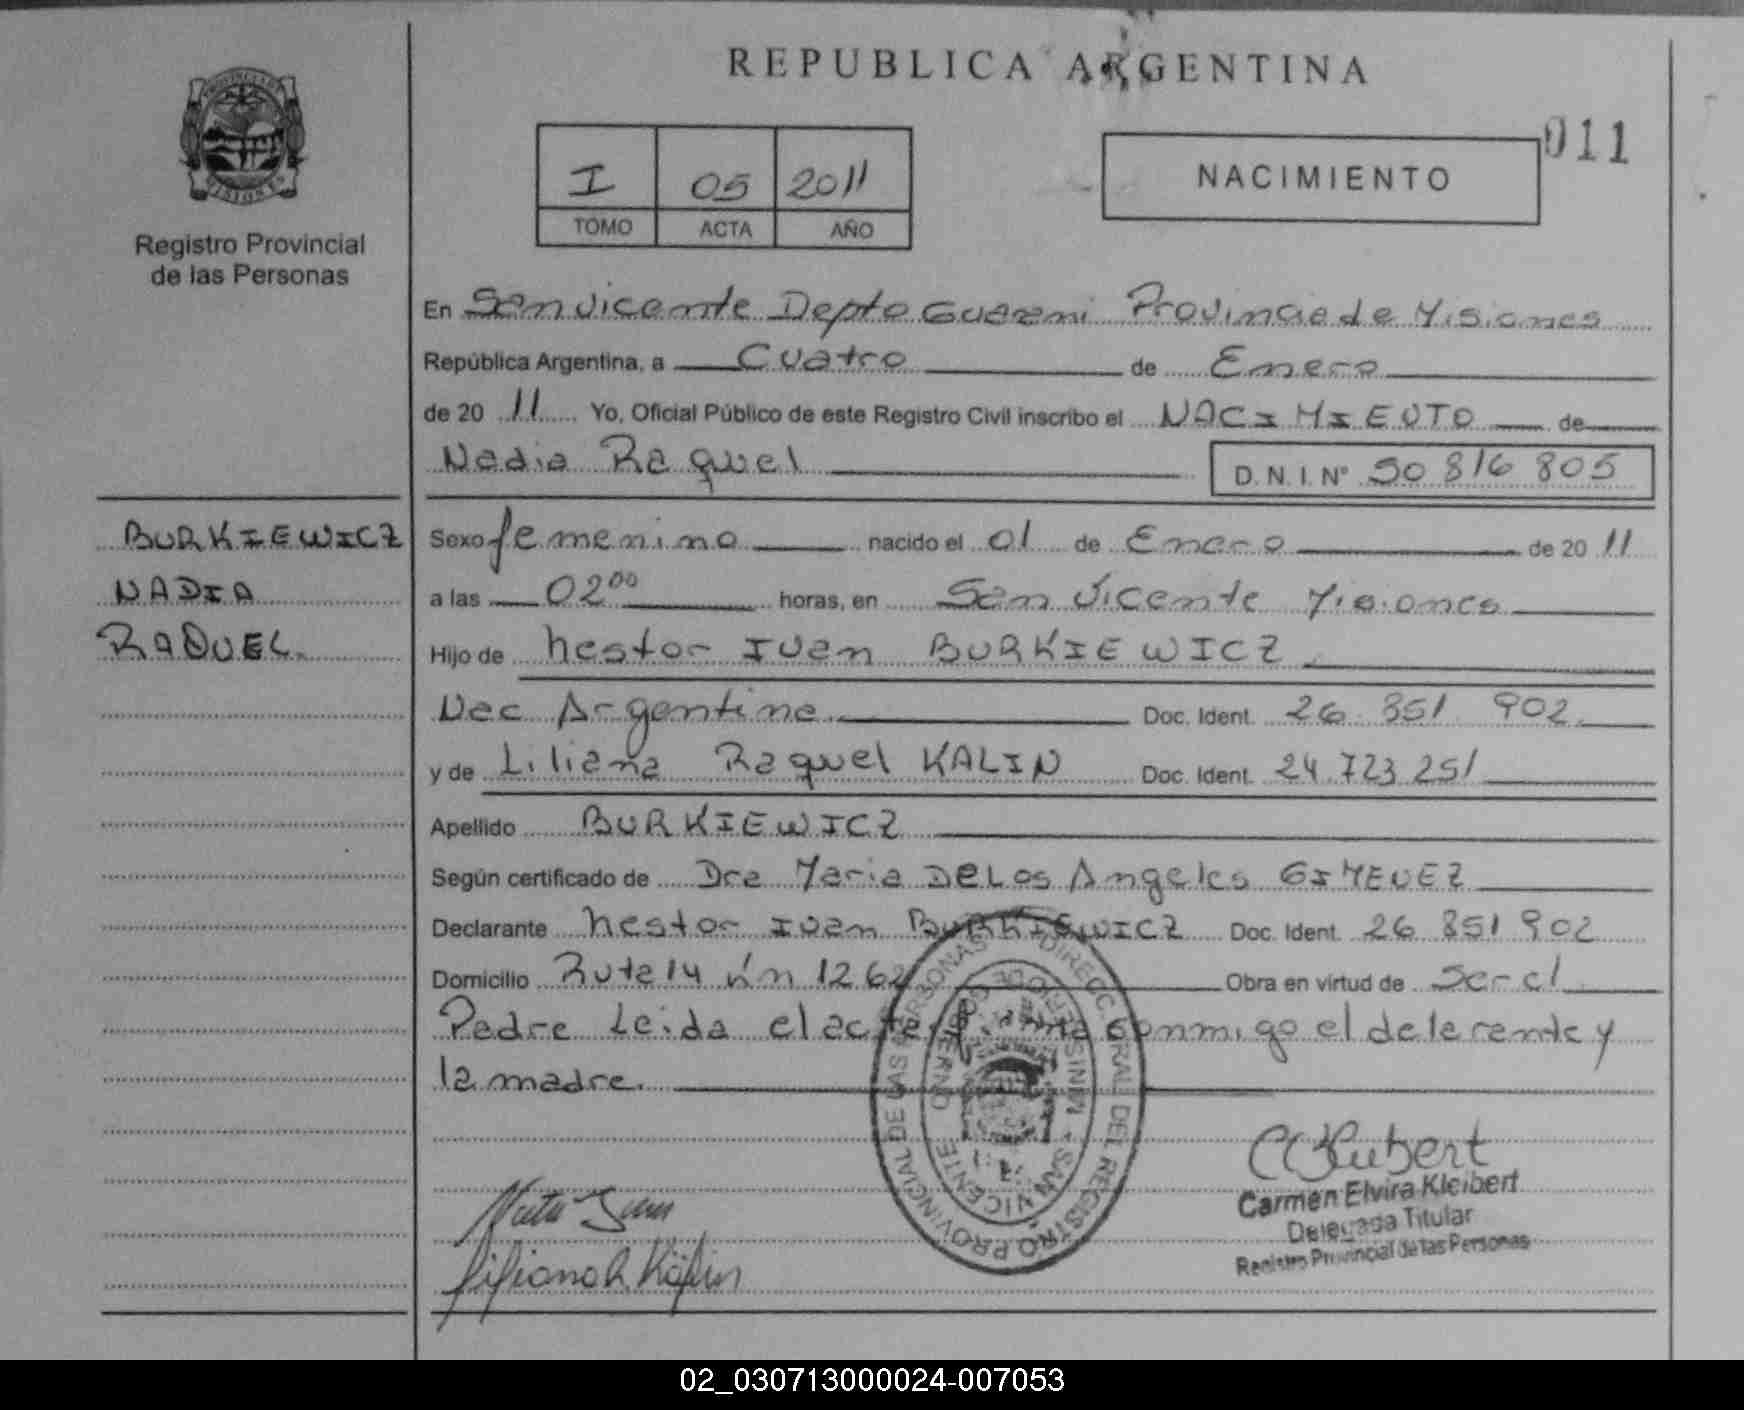 REPUBLICA ARGENTINA
011
I 05 2011
TOMO ACTA AÑO
NACIMIENTO
Registro Provincial
de las Personas
En San Vicente Depto Guarani Provincia de Misiones
República Argentina, a Cuatro de Enero
de 20 11 Yo, Oficial Público de este Registro Civil inscribo el NACIMIENTO de
Nadia Raquel D.N.I. Nº 50 816 805
BURKIEWICZ
NADIA
RAQUEL
Sexo femenino nacido el 01 de Enero de 20 11
a las 02⁰⁰ horas, en San Vicente Misiones
Hijo de Nestor Ivan BURKIEWICZ
Nac Argentina Doc. Ident. 26.851 902
y de Liliana Raquel KALIN Doc. Ident. 24.723 251
Apellido BURKIEWICZ
Según certificado de Dra Maria DE Los Angeles GIMENEZ
Declarante Nestor Ivan BURKIEWICZ Doc. Ident. 26 851 902
Domicilio Ruta 14 Km 1262 Obra en virtud de Ser el
Padre Leida el acta conmigo el y
la madre.
REGISTRO PROVINCIAL DE LAS PERSONAS
SAN VICENTE
Carmen Elvira Kleibert
Delegada Titular
Registro Provincial de las Personas
Liliana R. Kalin
02_030713000024-007053